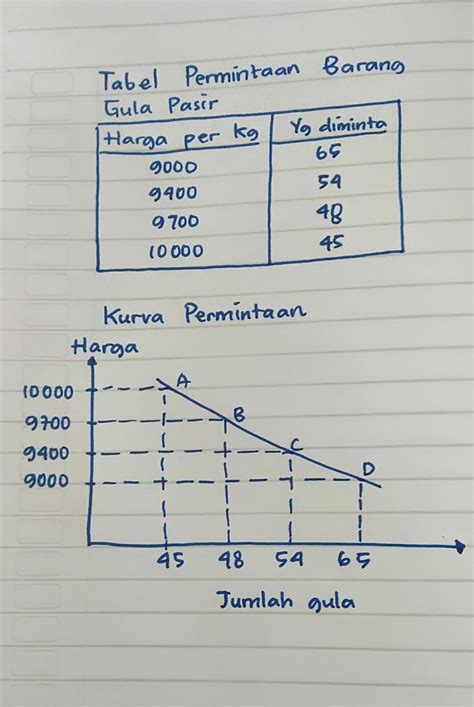 Tabel Permintaan Barang
Gula Pasir
Harga per kg Yg diminta
9000 65
9400 54
9700 48
10000 45
Kurva Permintaan
Harga
10000 A
9700 B
9400 C
9000 D
45 48 54 65
Jumlah gula